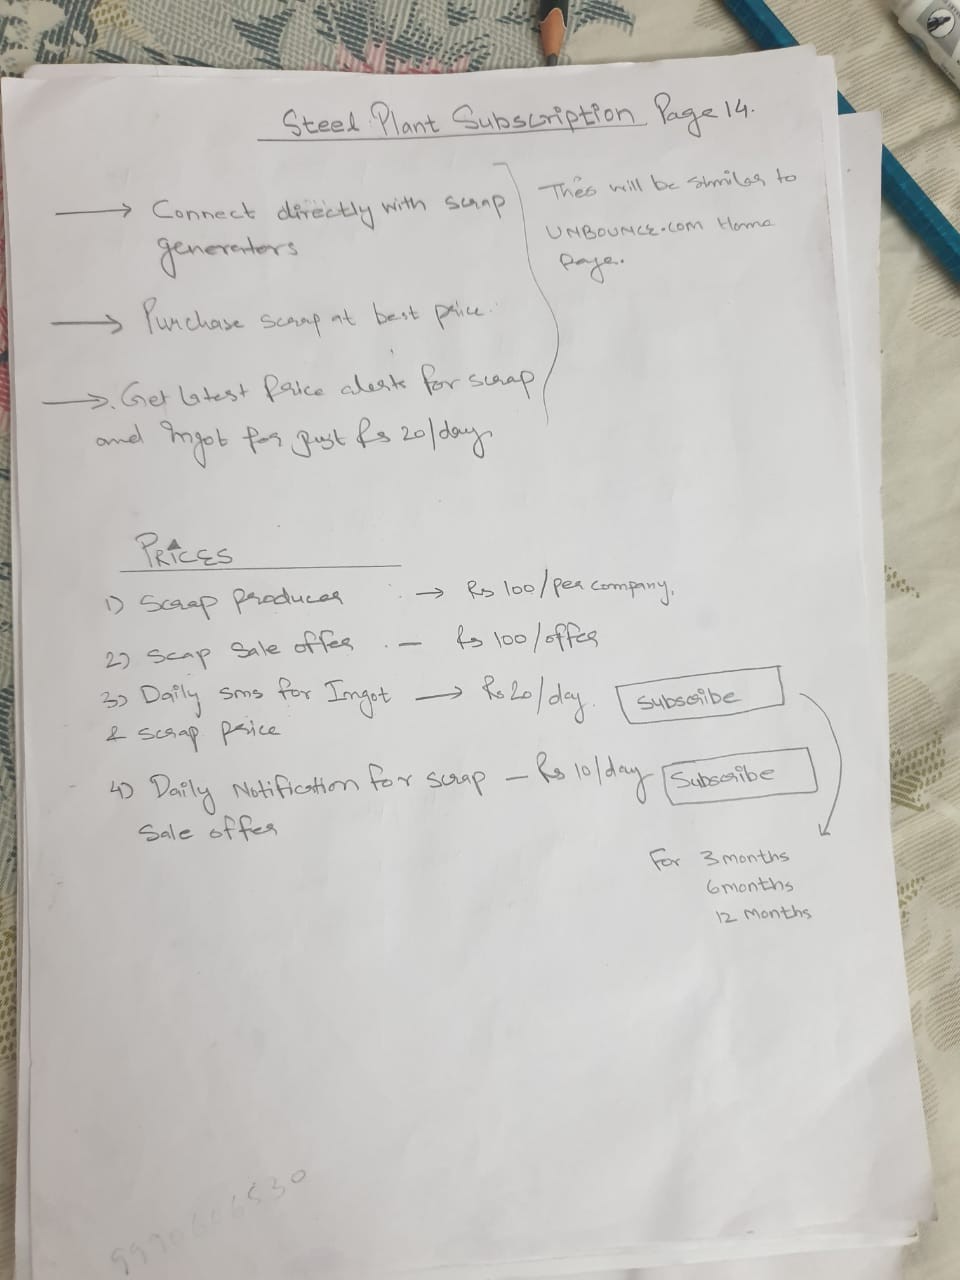 Steel Plant Subscription Page 14.
→ Connect directly with scrap
generators
→ Purchase scrap at best price.
→ Get latest Price alerts for scrap
and Ingot for just Rs 20/day
This will be similar to
UNBOUNCE.COM Home
Page.
PRICES
1) Scrap producer → Rs 100/per company.
2) Scap Sale offer - Rs 100/offer
3) Daily sms for Ingot → Rs 20/day. Subscribe
& scrap price
4) Daily Notification for scrap - Rs 10/day Subscribe
Sale offer
For 3 months
6 months
12 Months